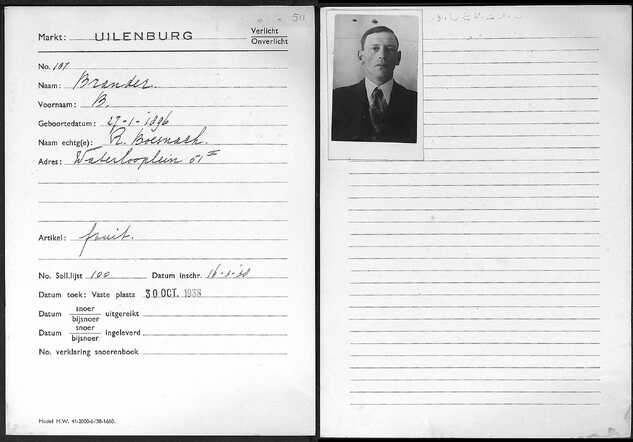 511
Markt: UILENBURG Verlicht
Onverlicht
No. 187
Naam: Brander.
Voornaam: B.
Geboortedatum: 27-1-1896
Naam echtg(e): R. Boesnach.
Adres: Waterlooplein 51 II
Artikel: fruit.
No. Soll.lijst 100 Datum inschr. 16-3-38
Datum toek: Vaste plaats 30 OCT. 1938
Datum snoer uitgereikt
bijsnoer
Datum snoer ingeleverd
bijsnoer
No. verklaring snoerenboek
Model M.W. 41-2000-6/38-1660.